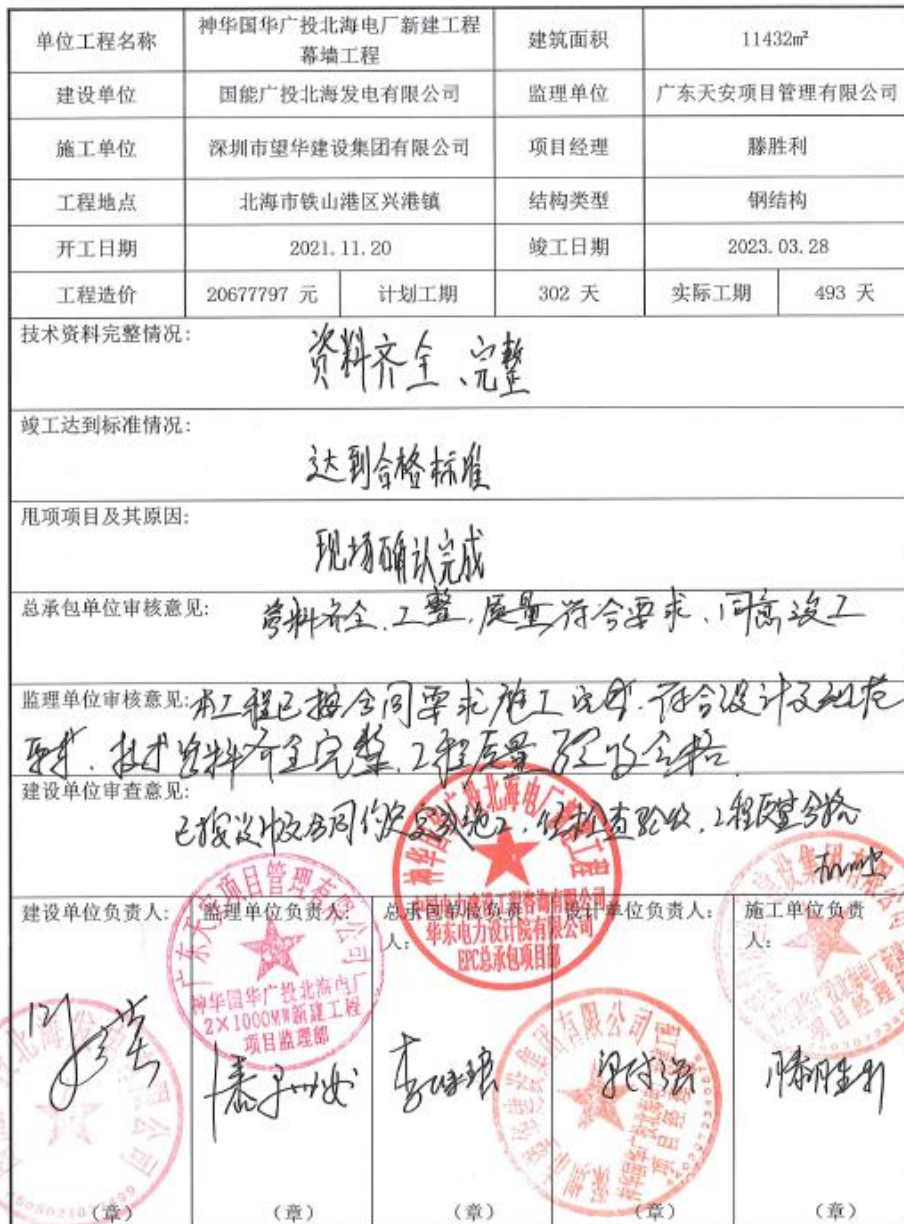 单位工程名称 神华国华广投北海电厂新建工程 建筑面积 11432m²
幕墙工程
建设单位 国能广投北海发电有限公司 监理单位 广东天安项目管理有限公司
施工单位 深圳市望华建设集团有限公司 项目经理 滕胜利
工程地点 北海市铁山港区兴港镇 结构类型 钢结构
开工日期 2021.11.20 竣工日期 2023.03.28
工程造价 20677797 元 计划工期 302 天 实际工期 493 天
技术资料完整情况:
资料齐全、完整
竣工达到标准情况:
达到合格标准
甩项项目及其原因:
现场确认完成
总承包单位审核意见: 资料齐全、工整,质量符合要求,同意竣工
监理单位审核意见: 本工程已按合同要求施工完成,符合设计及规范
要求,技术资料齐全完整,工程质量验收合格
建设单位审查意见:
已按设计及合同约定完成施工,经检查验收,工程质量合格
建设单位负责人: 监理单位负责人: 总承包单位负责人: 设计单位负责人: 施工单位负责人:
广东天安项目管理有限公司
神华国华广投北海电厂
2×1000MW新建工程
项目监理部
神华国华广投北海电厂新建工程
华东电力设计院有限公司
EPC总承包项目部
项目经理部
滕胜利
(章) (章) (章) (章) (章)